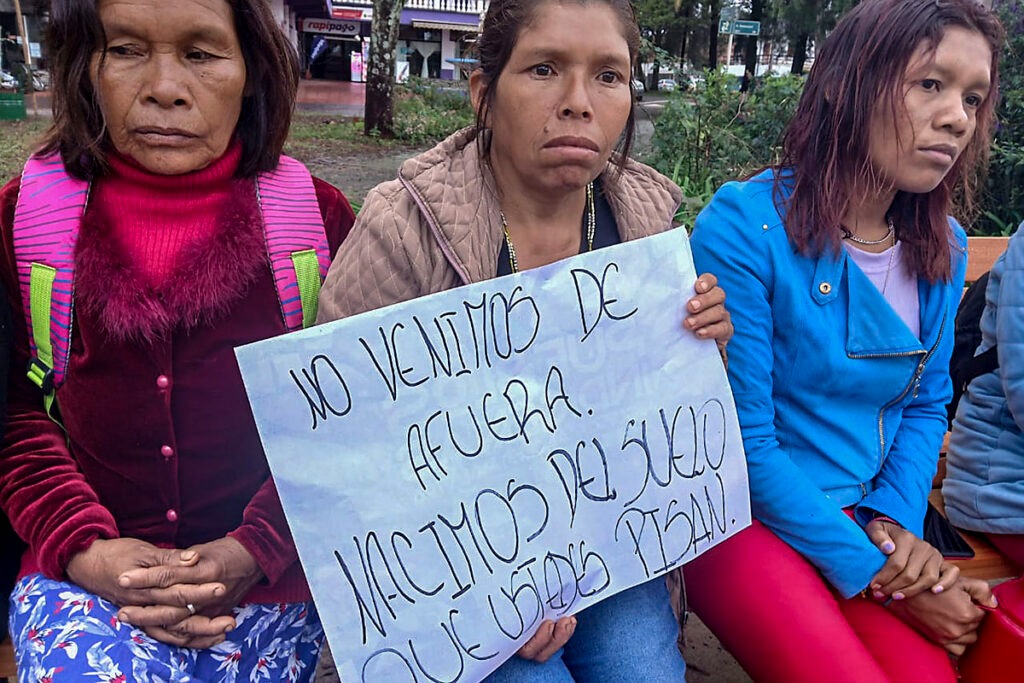 rapipago
NO VENIMOS DE
AFUERA.
NACIMOS DEL SUELO
QUE USTEDES PISAN.